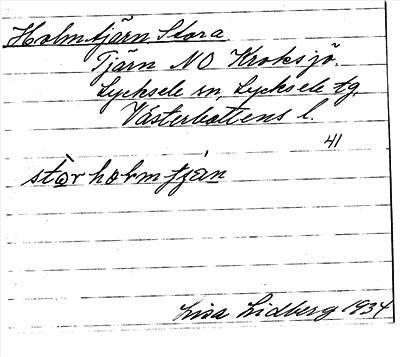 Holmtjärn, Stora
Tjärn NO Kroksjö.
Lycksele sn, Lycksele tg.
Västerbottens l.
41
stòrhòlmtjàn
Lisa Lidberg 1934